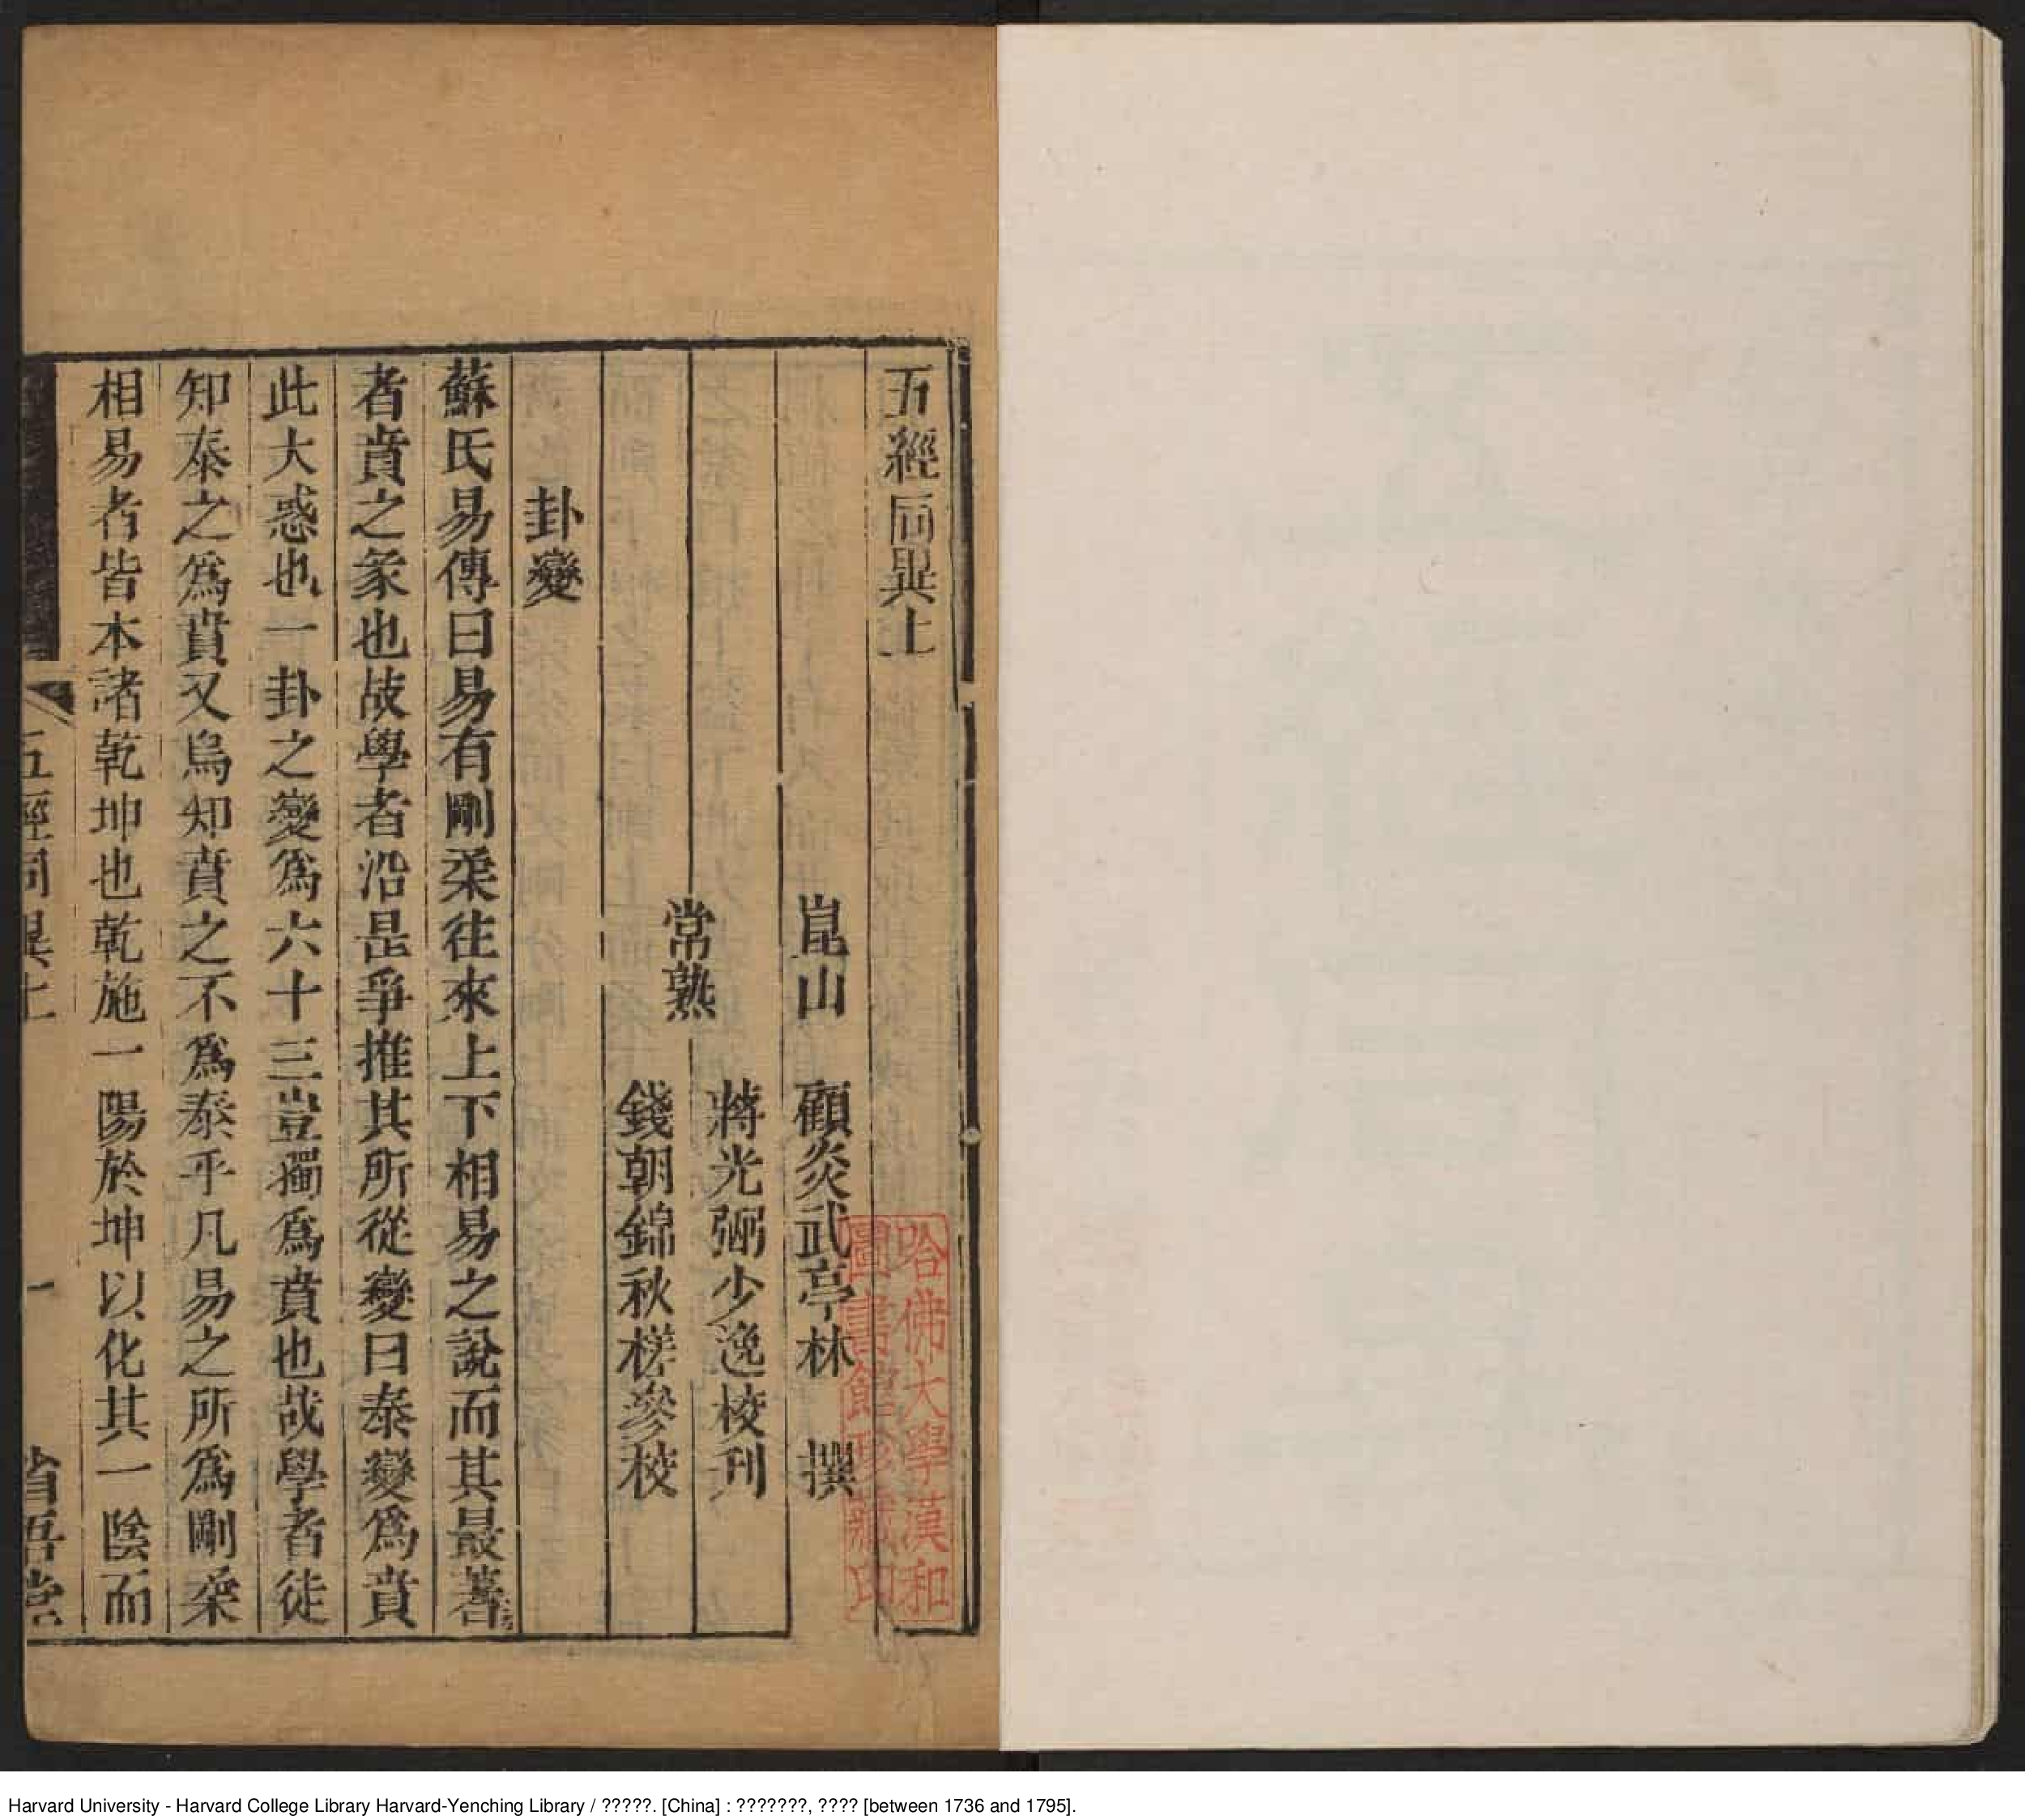 五經同異上
崑山　顧炎武亭林　撰
常熟
蔣光弼少逸校刊
錢朝錦秋槎參校
卦變
蘇氏易傳曰易有剛柔往來上下相易之說而其最著
者賁之彖也故學者沿是爭推其所從變曰泰變爲賁
此大惑也一卦之變爲六十三豈獨爲賁也哉學者徒
知泰之爲賁又烏知賁之不爲泰乎凡易之所爲剛柔
相易者皆本諸乾坤也乾施一陽於坤以化其一陰而
五經同異上
一
省吾堂
哈佛大學漢和
圖書館珍藏印
Harvard University - Harvard College Library Harvard-Yenching Library / ?????. [China] : ???????, ???? [between 1736 and 1795].